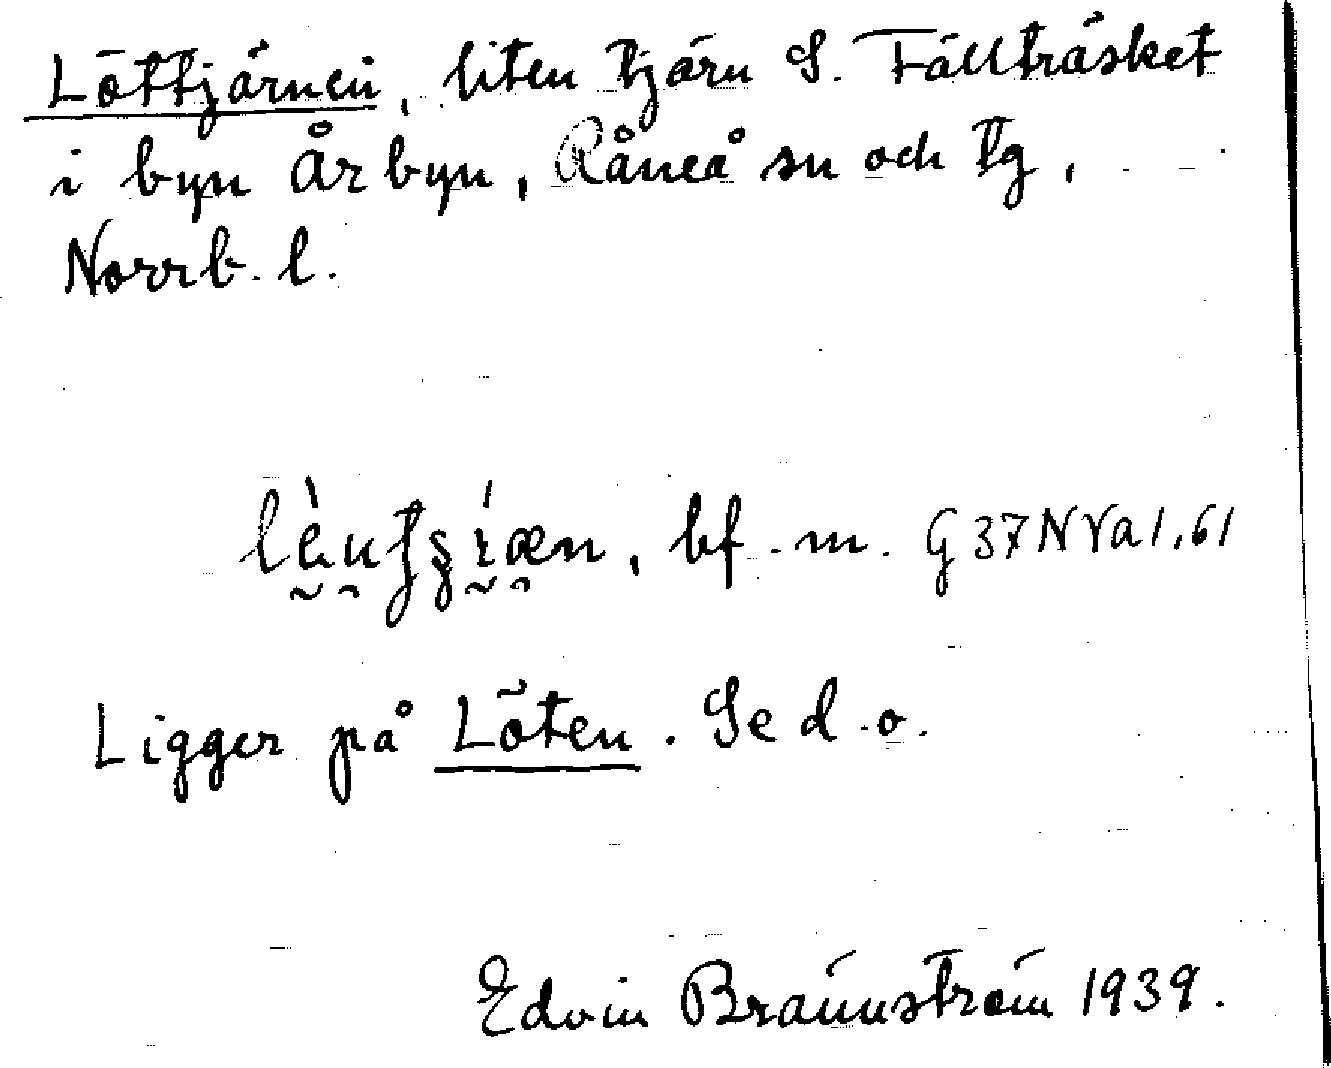 Löttjärnen, liten tjärn S. Fällträsket
i byn Årbyn, Råneå sn och tg,
Norrb. l.
bf. m. G37NVa1,61
Ligger på Löten. Se d.o.
Edvin Brännström 1939.